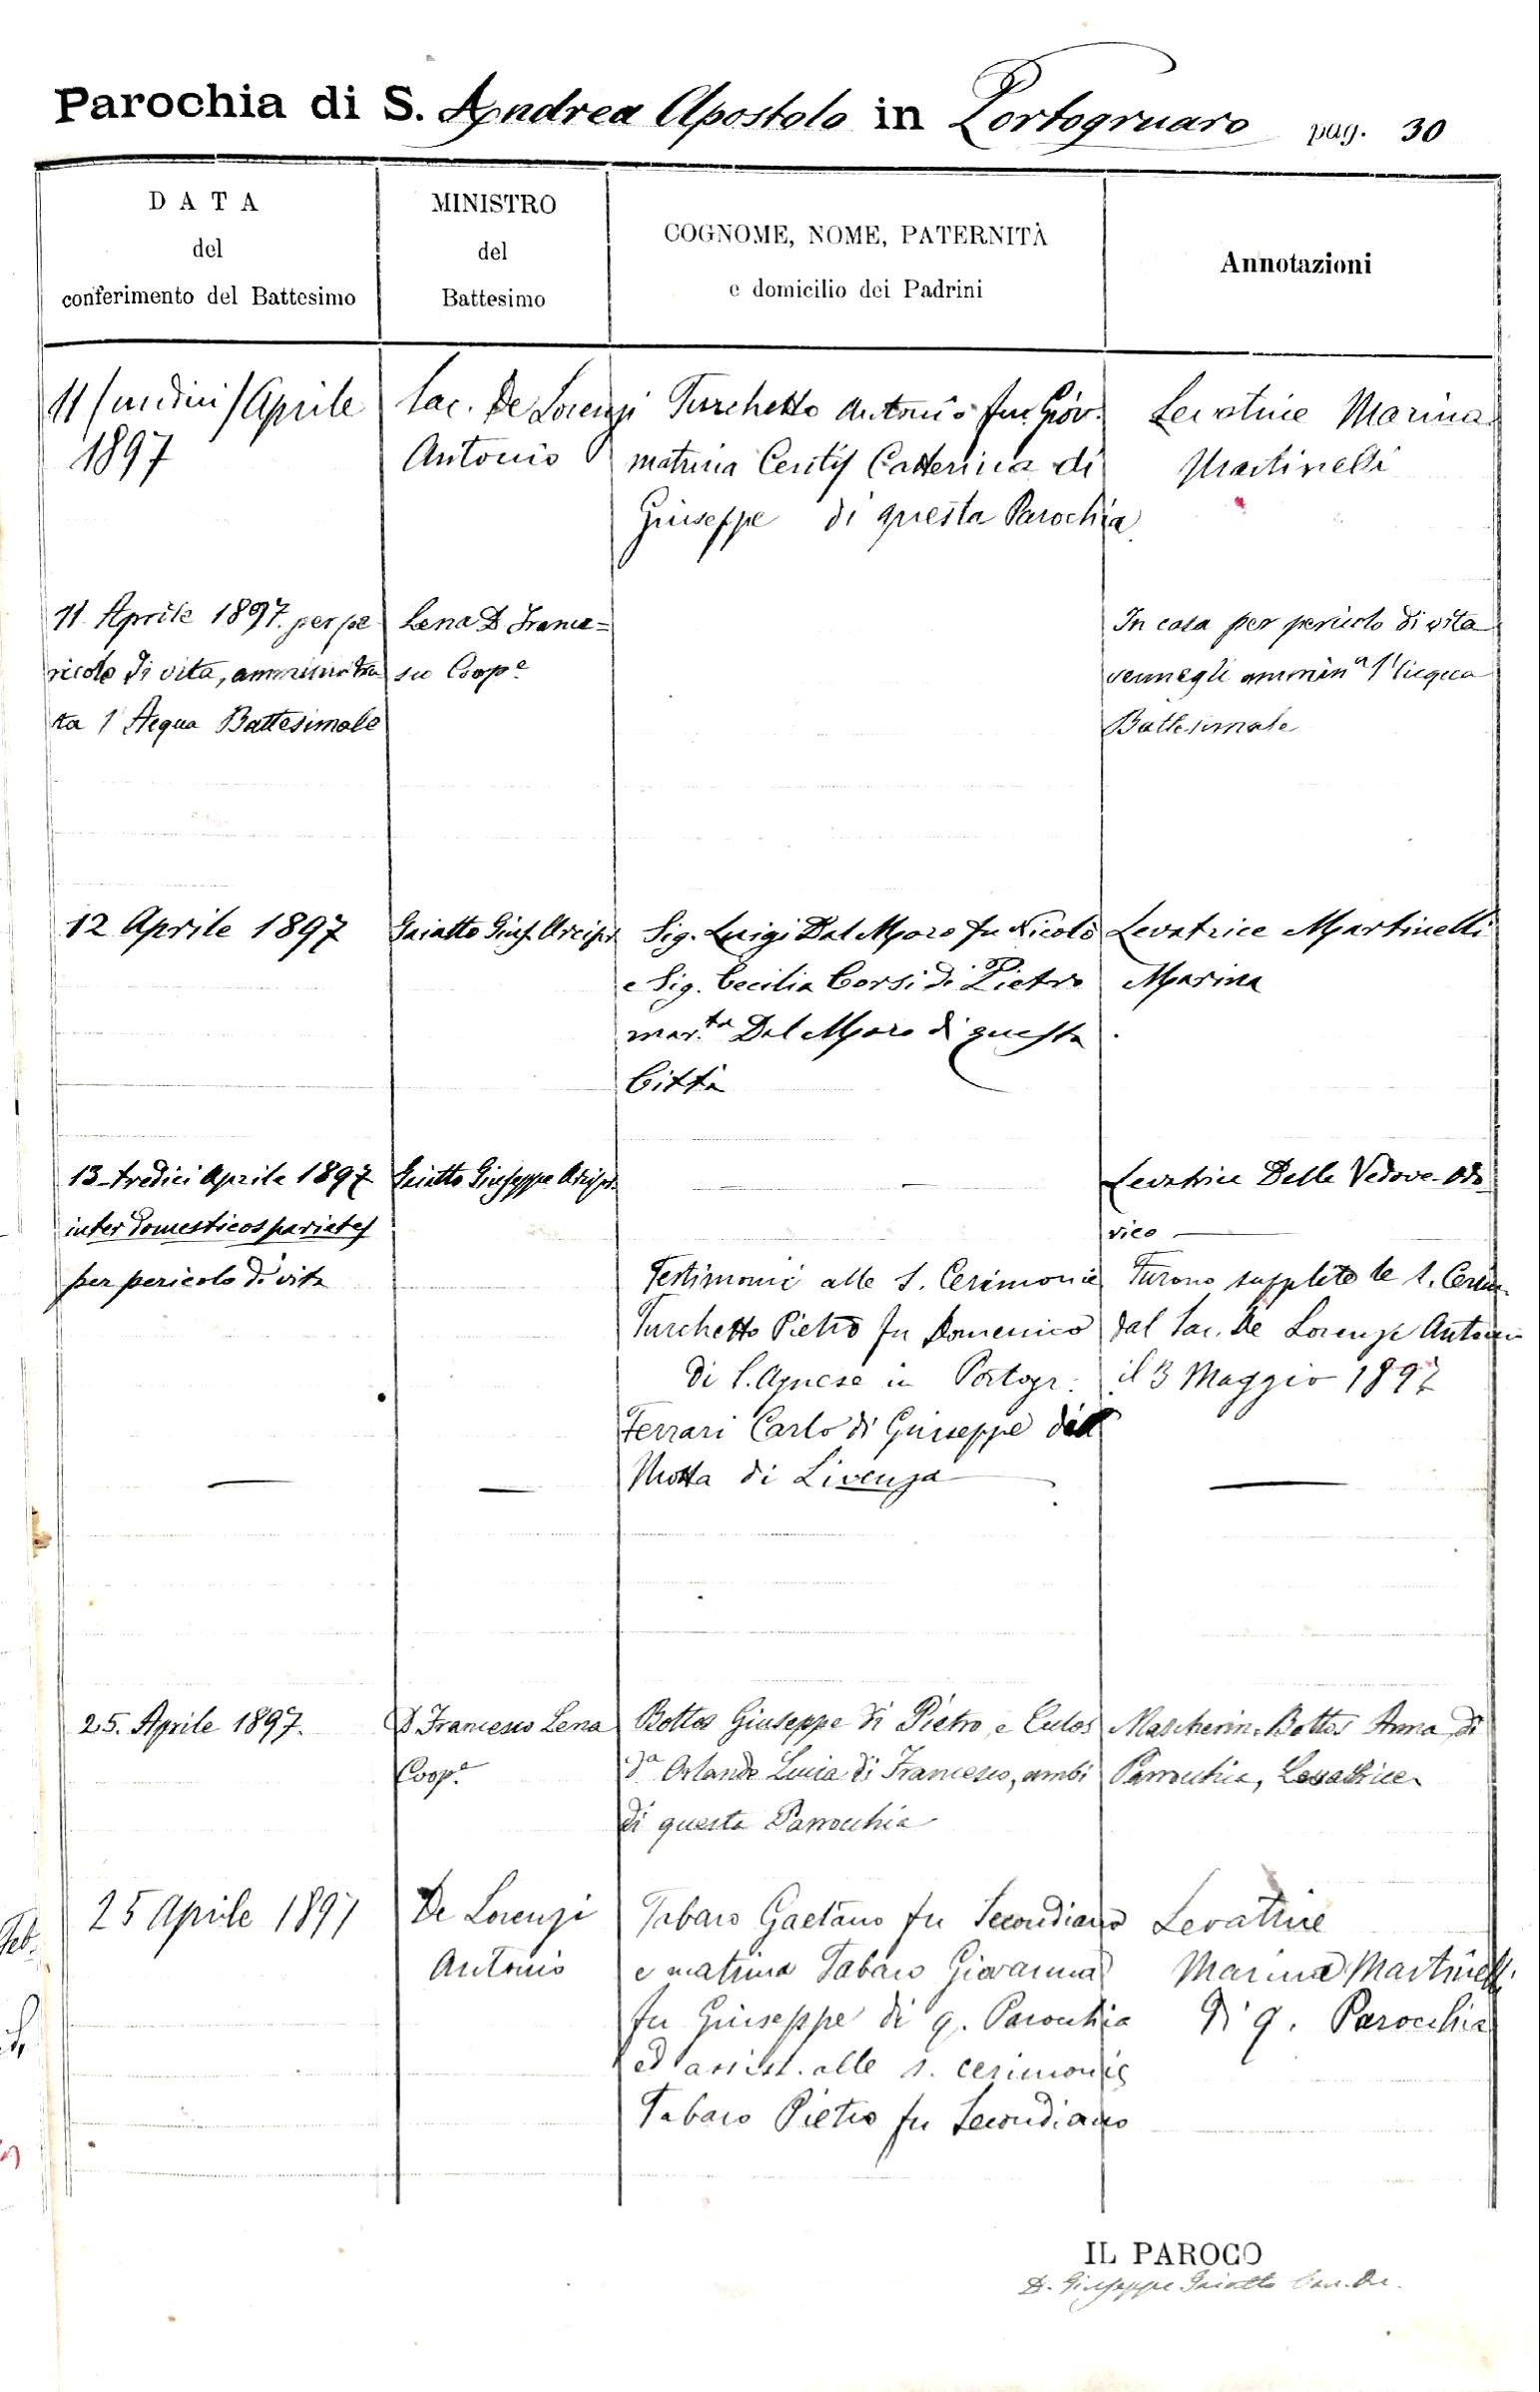 Parochia di S. Andrea Apostolo in Portogruaro pag. 30
DATA
del
conferimento del Battesimo
MINISTRO
del
Battesimo
COGNOME, NOME, PATERNITÀ
e domicilio dei Padrini
Annotazioni
11 (undici) Aprile
1897
Sac. De Lorenzi
Antonio
Turchetto Antonio fu Giov.
matrina Catterina di
Giuseppe di questa Parochia
Levatrice Marina
Martinelli
11 Aprile 1897 per pe
ricolo di vita, amministra
ta l'Acqua Battesimale
Lena D. France=
sco Coop.e
In casa per pericolo di vita
vennegli ammin.a l'Acqua
Battesimale
12 Aprile 1897
Gaiatto Gius. Arcipr
Sig. Luigi Dal Moro fu Nicolò
e Sig. Cecilia Corsi di Pietro
mar.ta Dal Moro di questa
Città
Levatrice Martinelli
Marina
13 tredici Aprile 1897
inter domesticos parietes
per pericolo di vita
Gaiatto Giuseppe Arcipr.
Testimoni alle S. Cerimonie
Turchetto Pietro fu Domenico
di S. Agnese in Portogr.
Ferrari Carlo di Giuseppe di
Motta di Livenza
Levatrice Delle Vedove Odo
rico
Furono supplite le s. Cerim.
dal Sac. De Lorenzi Antonio
il 3 Maggio 1897
25. Aprile 1897.
D. Francesco Lena
Coop.e
Bottos Giuseppe di Pietro, e Culos
d.a Orlando Lucia di Francesco, ambi
di questa Parrochia
Mascherin-Bottos Anna di
Parrochia, Levatrice
25 Aprile 1897
De Lorenzi
Antonio
Tabaro Gaetano fu Secondiano
e matrina Tabaro Giovanna
fu Giuseppe di q. Parochia
ed assist. alle s. cerimonie
Tabaro Pietro fu Secondiano
Levatrice
Marina Martinelli
di q. Parochia
IL PAROCO
D. Giuseppe Gaiatto